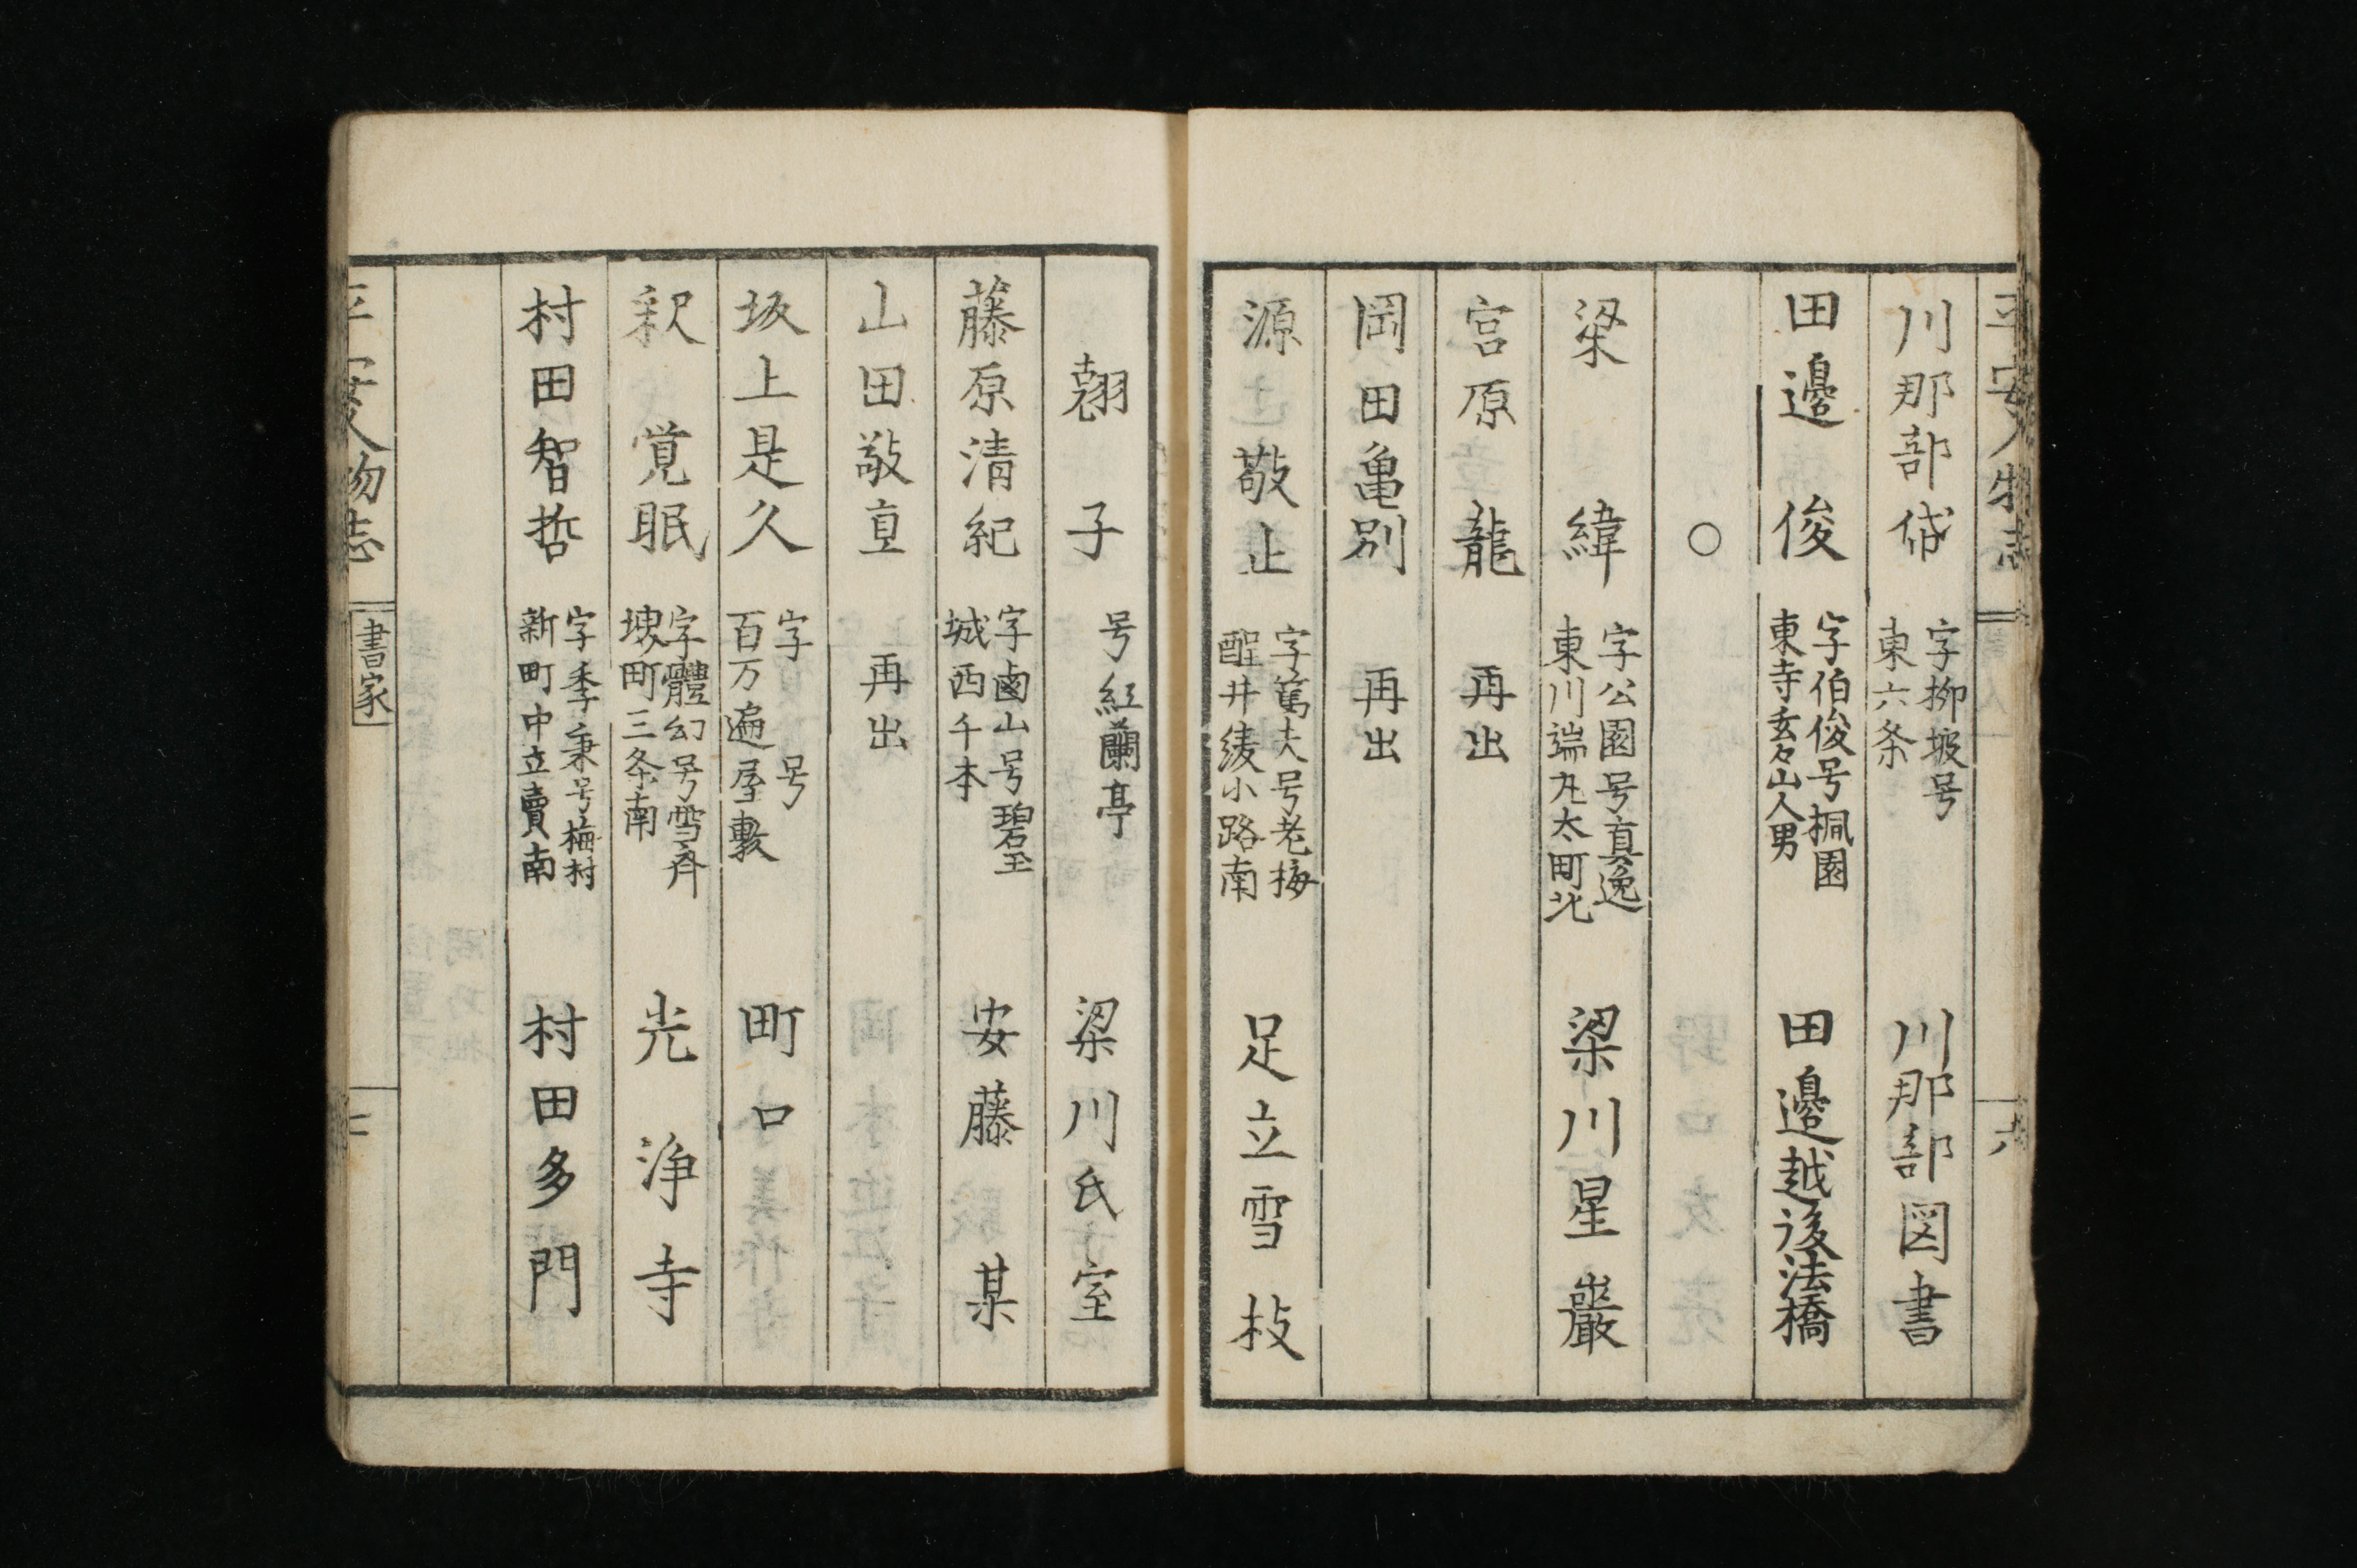 平安人物志 六
川那部 帒 字柳坡号 川那部図書
東六条
田邉俊 字伯俊号桐園 田邉越後法橋
東寺玄々山人男
○
梁 緯 字公園号真逸 梁川星巖
東川端丸太町北
宮原龍 再出
岡田亀別 再出
源敬止 字篤夫号老梅 足立雪枝
醒井綾小路南
翘子 号紅蘭亭 梁川氏室
藤原清紀 字鹵山号碧玉 安藤某
城西千本
山田敬直 再出
坂上是久 字 号 町口
百万遍屋敷
釈覚眠 字體幻号雪斉 光浄寺
堺町三条南
村田智哲 字季秉号梅村 村田多門
新町中立賣南
平安人物志 書家